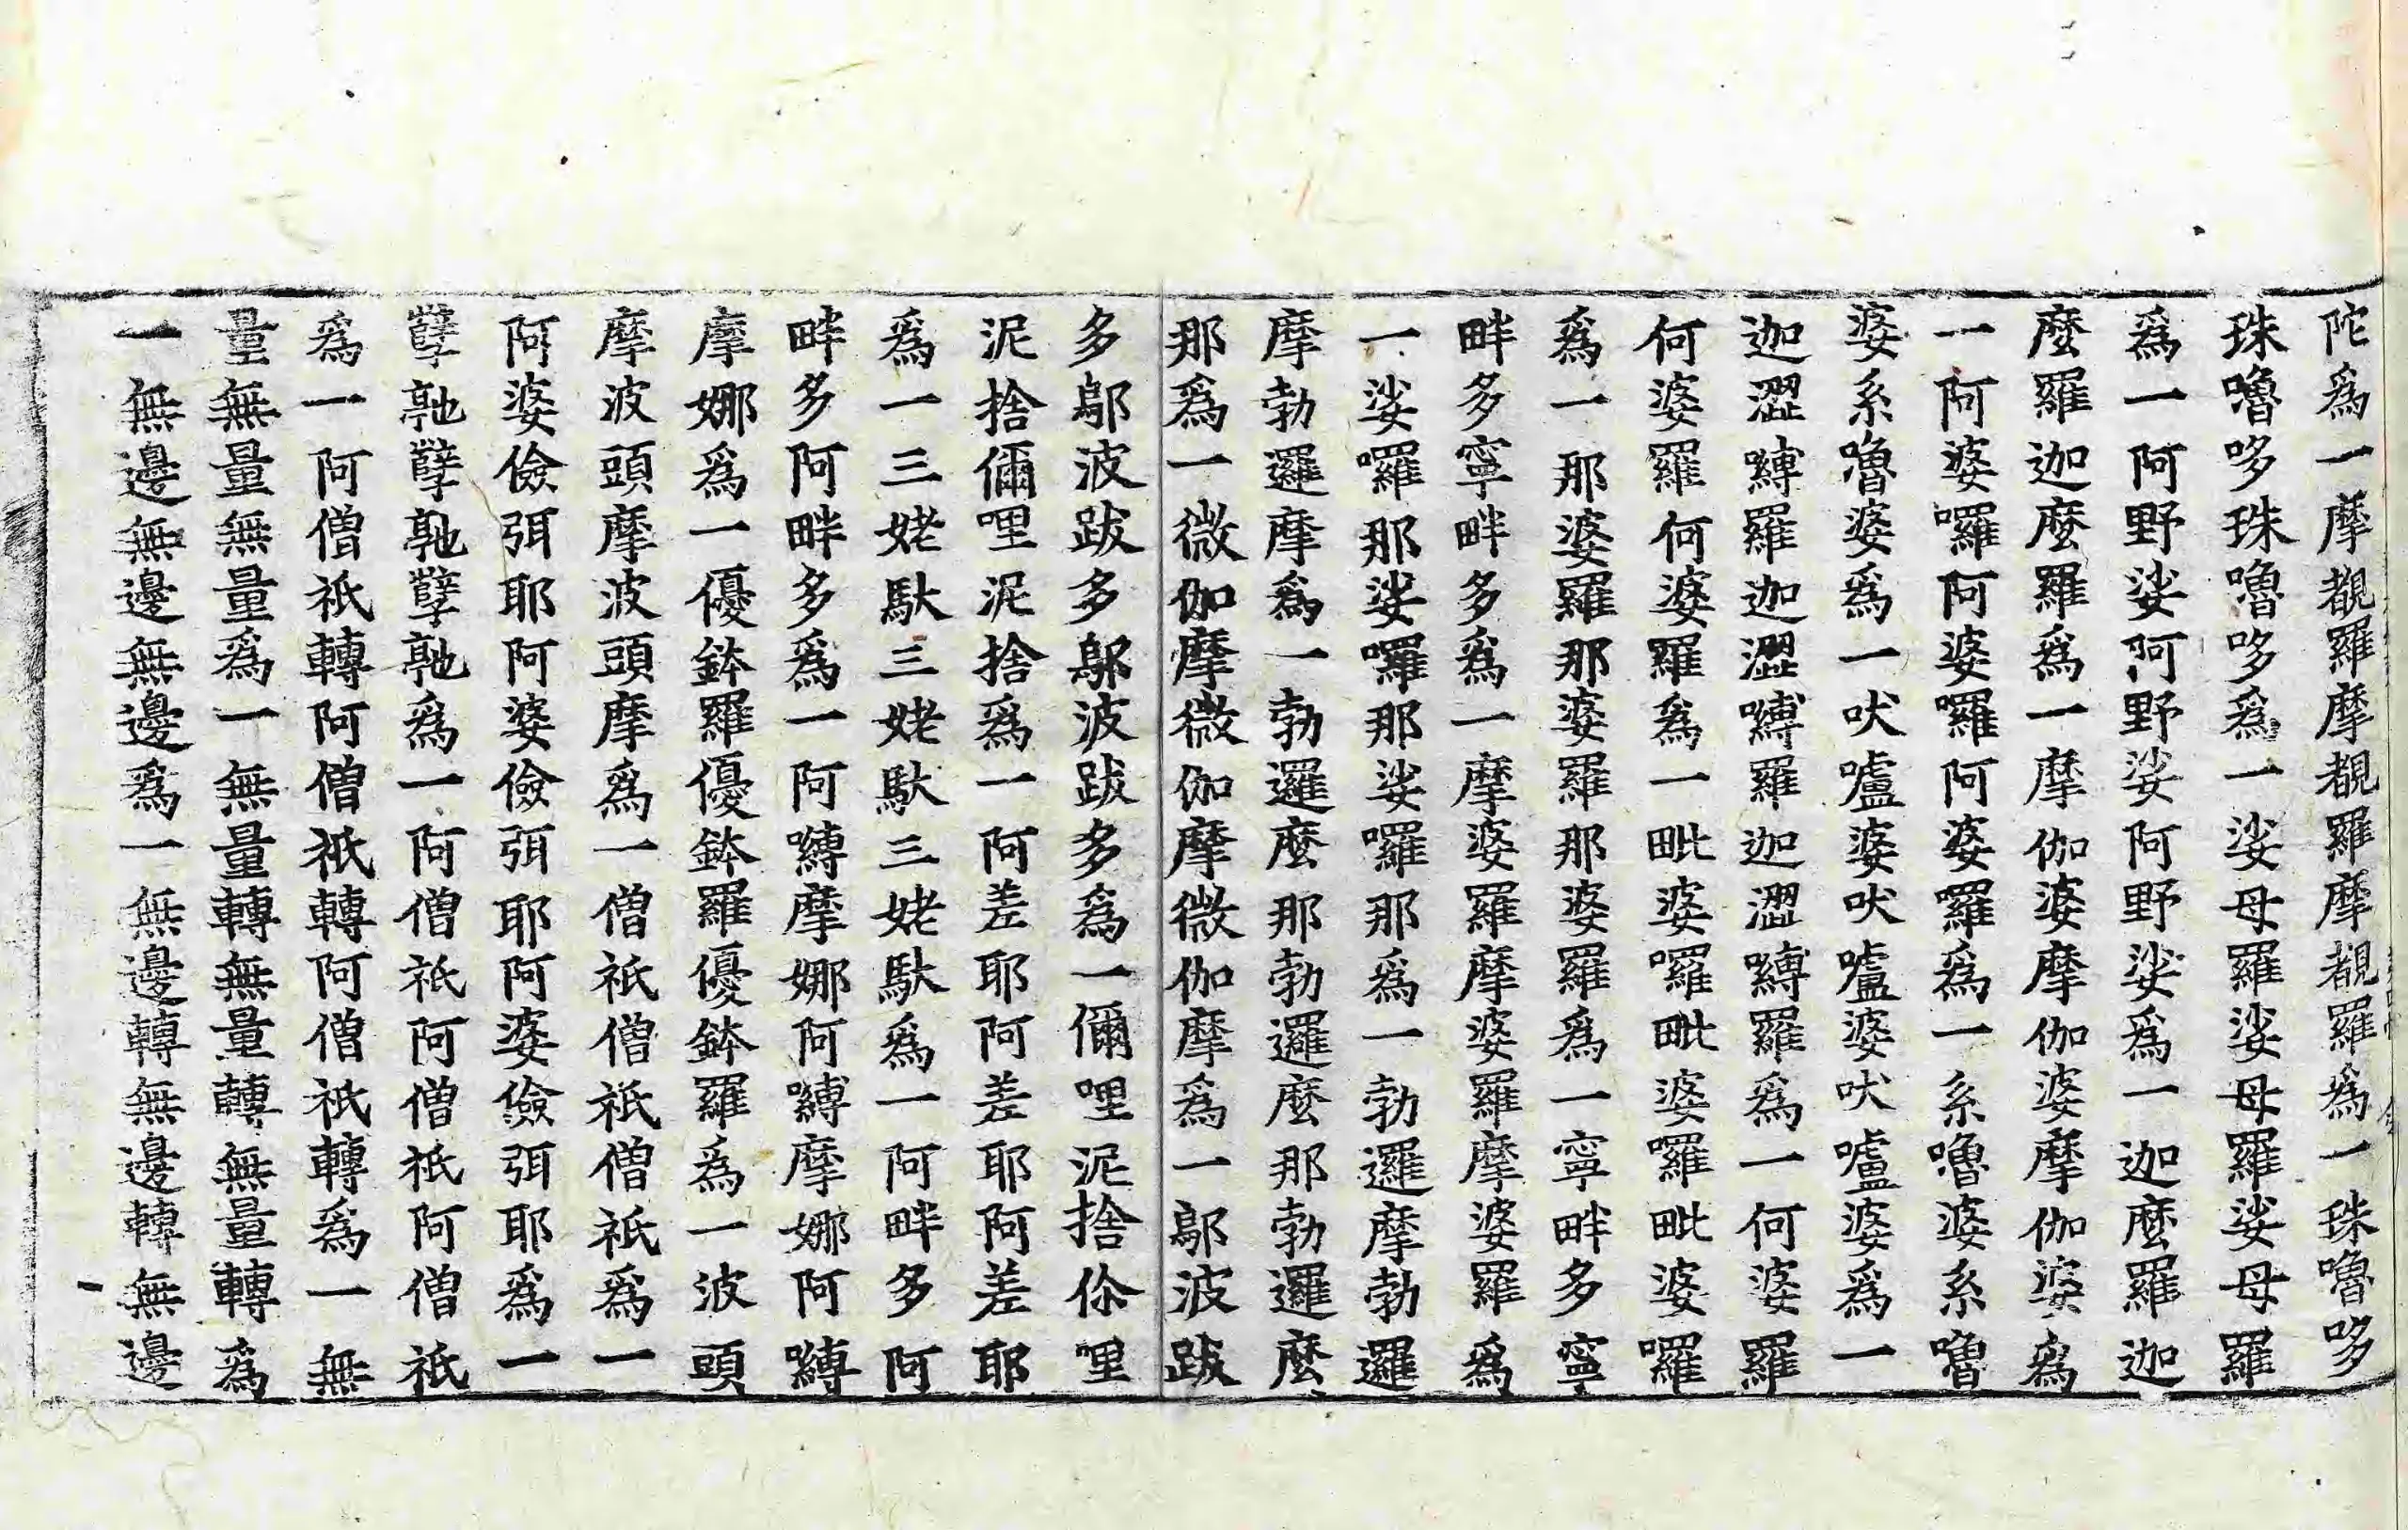 陀爲一摩覩羅摩覩羅摩覩羅爲一珠嚕哆
珠嚕哆珠嚕哆爲一娑母羅娑母羅娑母羅
爲一阿野娑阿野娑阿野娑爲一迦麼羅迦
麼羅迦麼羅爲一摩伽婆摩伽婆摩伽婆爲
一阿婆囉阿婆囉阿婆羅爲一系嚕婆系嚕
婆系嚕婆爲一吠嚧婆吠嚧婆吠嚧婆爲一
迦澀嚩羅迦澀嚩羅迦澀嚩羅爲一何婆羅
何婆羅何婆羅爲一毗婆囉毗婆囉毗婆囉
爲一那婆羅那婆羅那婆羅爲一寧畔多寧
畔多寧畔多爲一摩婆羅摩婆羅摩婆羅爲
一娑囉那娑囉那娑囉那爲一勃邏摩勃邏
摩勃邏摩爲一勃邏麼那勃邏麼那勃邏麼
那爲一微伽摩微伽摩微伽摩爲一鄔波跋
多鄔波跋多鄔波跋多爲一儞哩泥捨伱哩
泥捨儞哩泥捨爲一阿差耶阿差耶阿差耶
爲一三姥馱三姥馱三姥馱爲一阿畔多阿
畔多阿畔多爲一阿嚩摩娜阿嚩摩娜阿嚩
摩娜爲一優鉢羅優鉢羅優鉢羅爲一波頭
摩波頭摩波頭摩爲一僧祇僧祇僧祇爲一
阿婆儉弭耶阿婆儉弭耶阿婆儉弭耶爲一
孽馳孽馳孽馳爲一阿僧祇阿僧祇阿僧祇
爲一阿僧祇轉阿僧祇轉阿僧祇轉爲一無
量無量無量爲一無量轉無量轉無量轉爲
一無邊無邊無邊爲一無邊轉無邊轉無邊